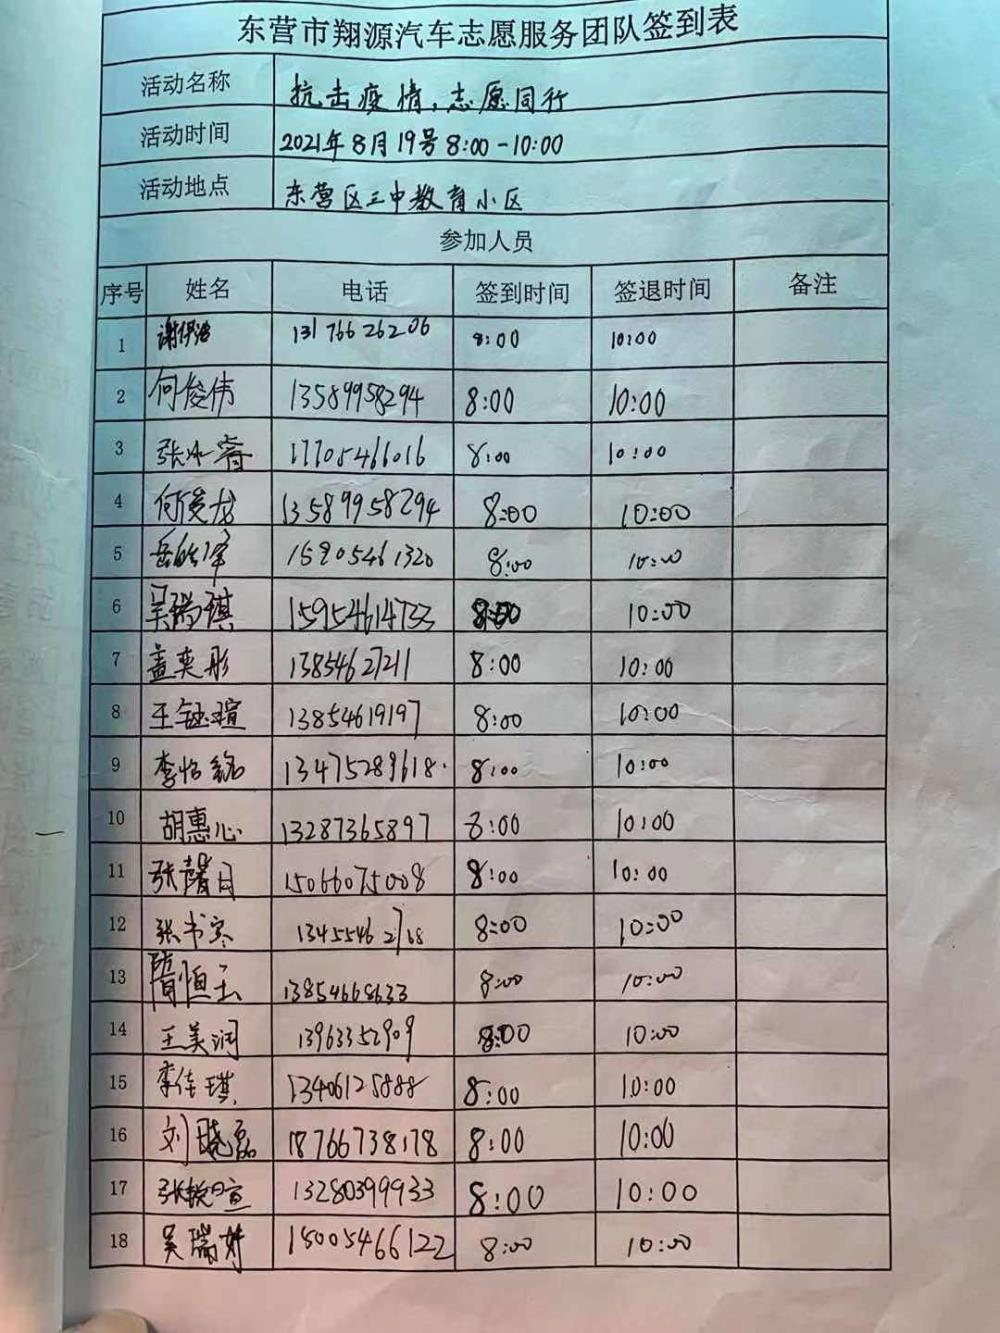 东营市翔源汽车志愿服务团队签到表
活动名称 抗击疫情,志愿同行
活动时间 2021年8月19号8:00-10:00
活动地点 东营区三中教育小区
参加人员
序号 姓名 电话 签到时间 签退时间 备注
1 谢伊涵 13176626206 8:00 10:00
2 何俊伟 13589958294 8:00 10:00
3 张冰睿 17705466016 8:00 10:00
4 何俊龙 13589958294 8:00 10:00
5 岳皓泽 15905461320 8:00 10:00
6 吴瑞琪 15954614733 8:00 10:00
7 盖奕彤 13854627211 8:00 10:00
8 王钰瑄 13854619197 8:00 10:00
9 李怡铭 13475289618 8:00 10:00
10 胡惠心 13287365897 8:00 10:00
11 张馨日 15066075008 8:00 10:00
12 张书 13455462768 8:00 10:00
13 隋恒玉 13854668633 8:00 10:00
14 王美润 13963352909 8:00 10:00
15 李佳琪 13406125888 8:00 10:00
16 刘晓磊 18766738178 8:00 10:00
17 张 13280399933 8:00 10:00
18 吴瑞妍 15005466122 8:00 10:00